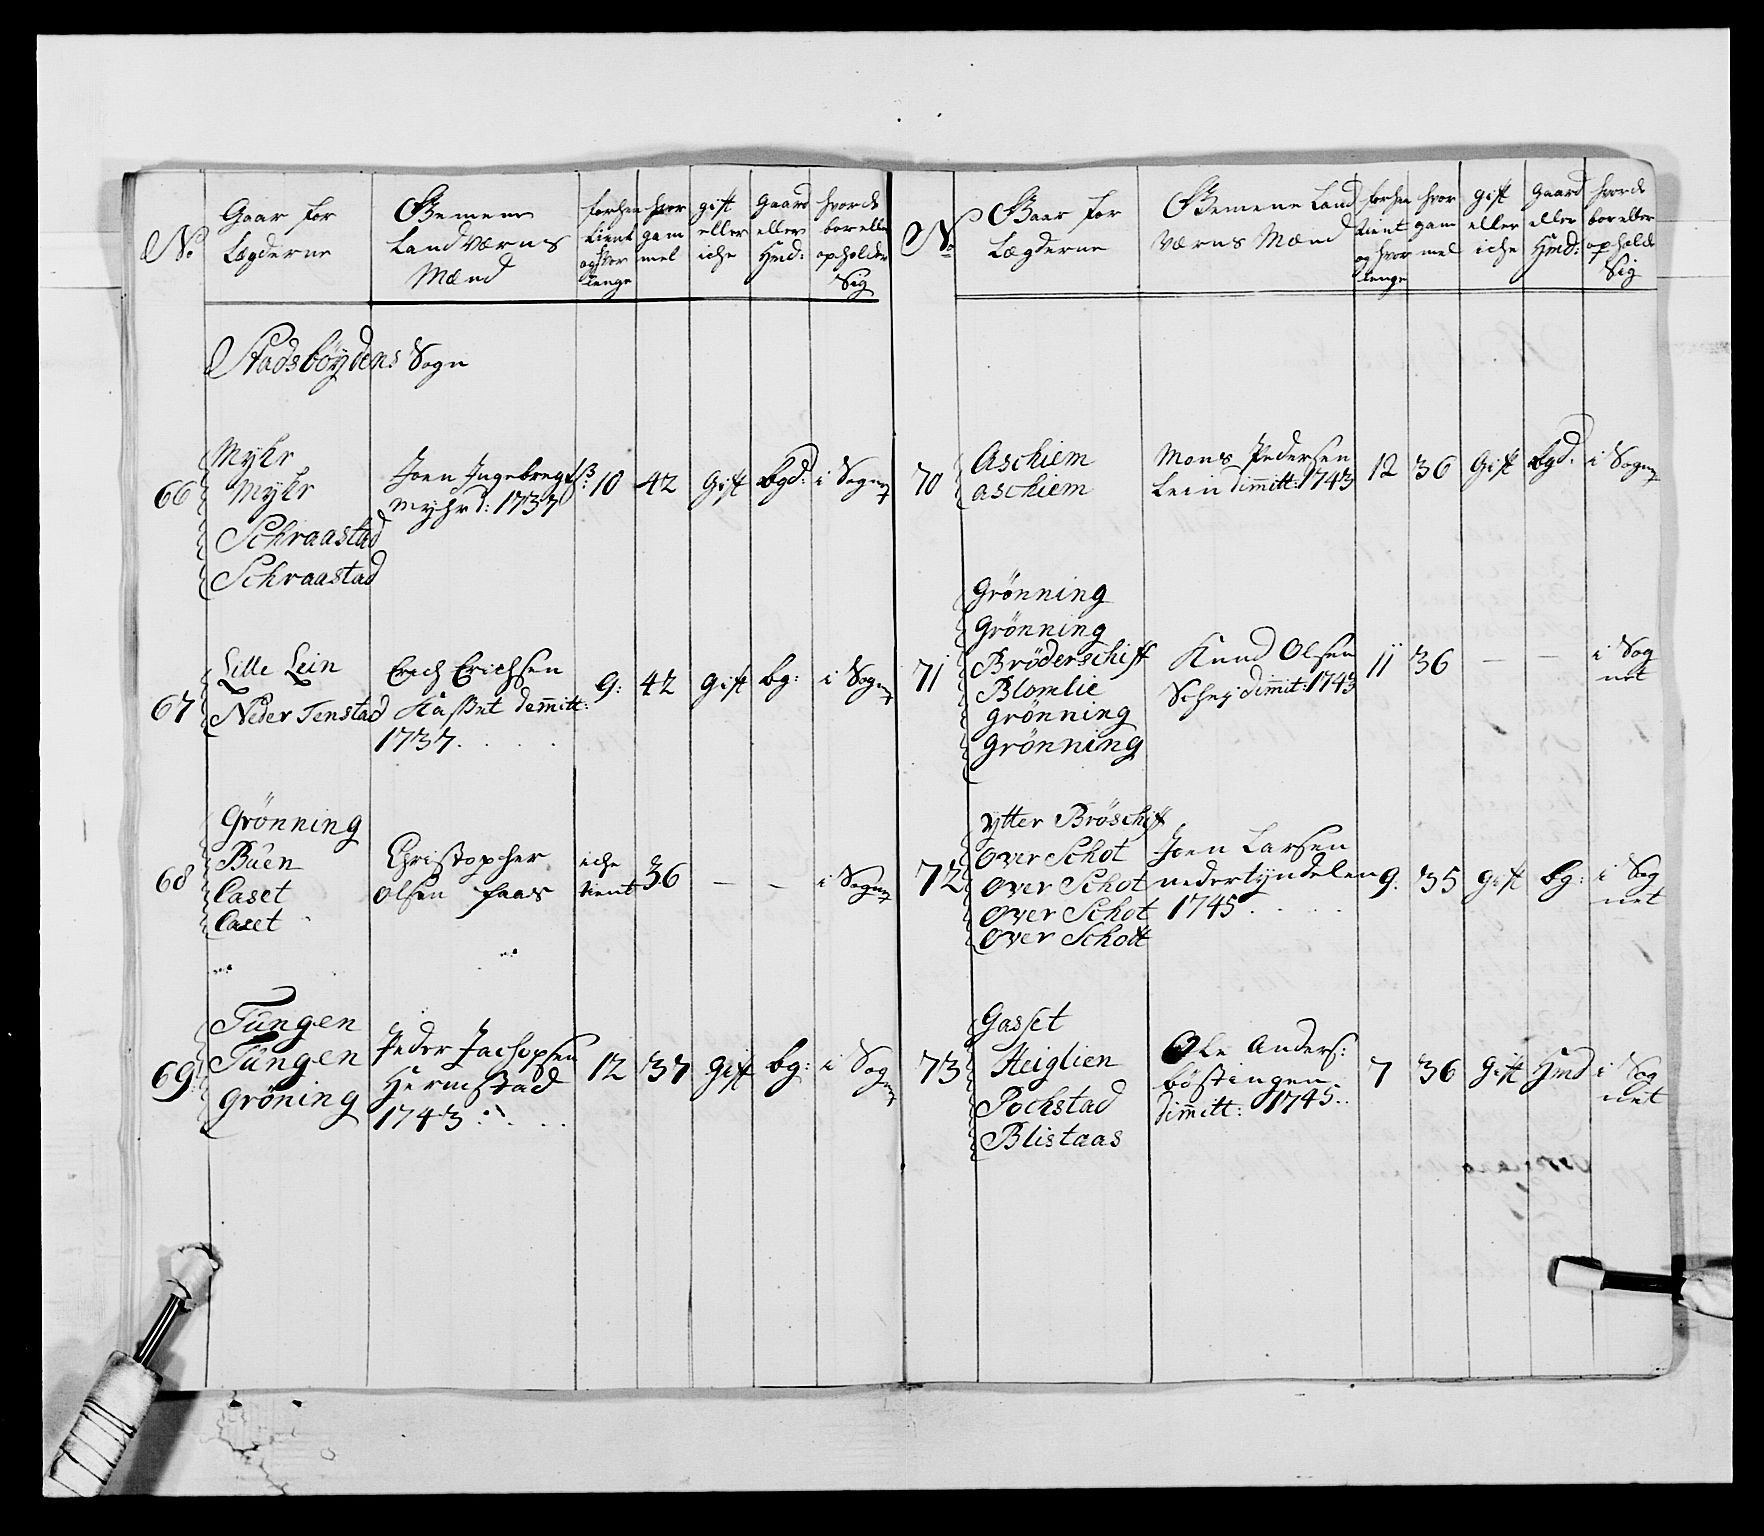 No
Gaar for
Lægderne
Gemene
Landværns
Mænd
forhen
tient
og hvor
lenge
hvor
gam
mel
gift
eller
iche
Gaard
eller
Hmd:
hvor de
bor eller
opholder
Sig
Stadsbøydens Sogn
66
Myhr
Myhr
Schraastad
Schraastad
Joen Ingebregtß:
Myhr d: 1737
10
42
Gift
bgd:
i Sognet
67
Lille Lein
Neder Tenstad
Erich Erichsen
demitt:
1737.
9:
42
gift
bg:
i Sognet
68
Grönning
Büen
Caset
Caset
Christopher
Olsen faas
iche
tient
36
—
—
i Sognet
69
Tüngen
Tüngen
Gröning
Peder Jachopsen
Hermstad
1743
12
37
Gift
bg:
i Sognet
No
Gaar for
Lægderne
Gemene Land
værns Mænd
forhen
tient
og hvor
lenge
hvor
gam
mel
gift
eller
iche
Gaard
eller
Hmd:
hvor de
bor eller
opholde
Sig
70
Aschiem
Aschiem
Mons Pedersen
Lein dimitt: 1743
12
36
Gift
bgd.
i Sognet
71
Grönning
Grönning
Bröderschift
Blomlie
Grönning
Grönning
Knud Olsen
Schej dimmit: 1743
11
36
—
—
i Sog
net
72
Ytter Bröschift
Over Schot
Over Schot
Over Schot
Over Schott
Joen Larsen
nedertyndelen
1745
9:
35
Gift
bg:
i Sog
net
73
Gasset
Heiglien
Pochstad
Blistaas
Ole Anders:
böstingen
dimitt: 1745.
7
36
Gift
Hmd
i Sog
net